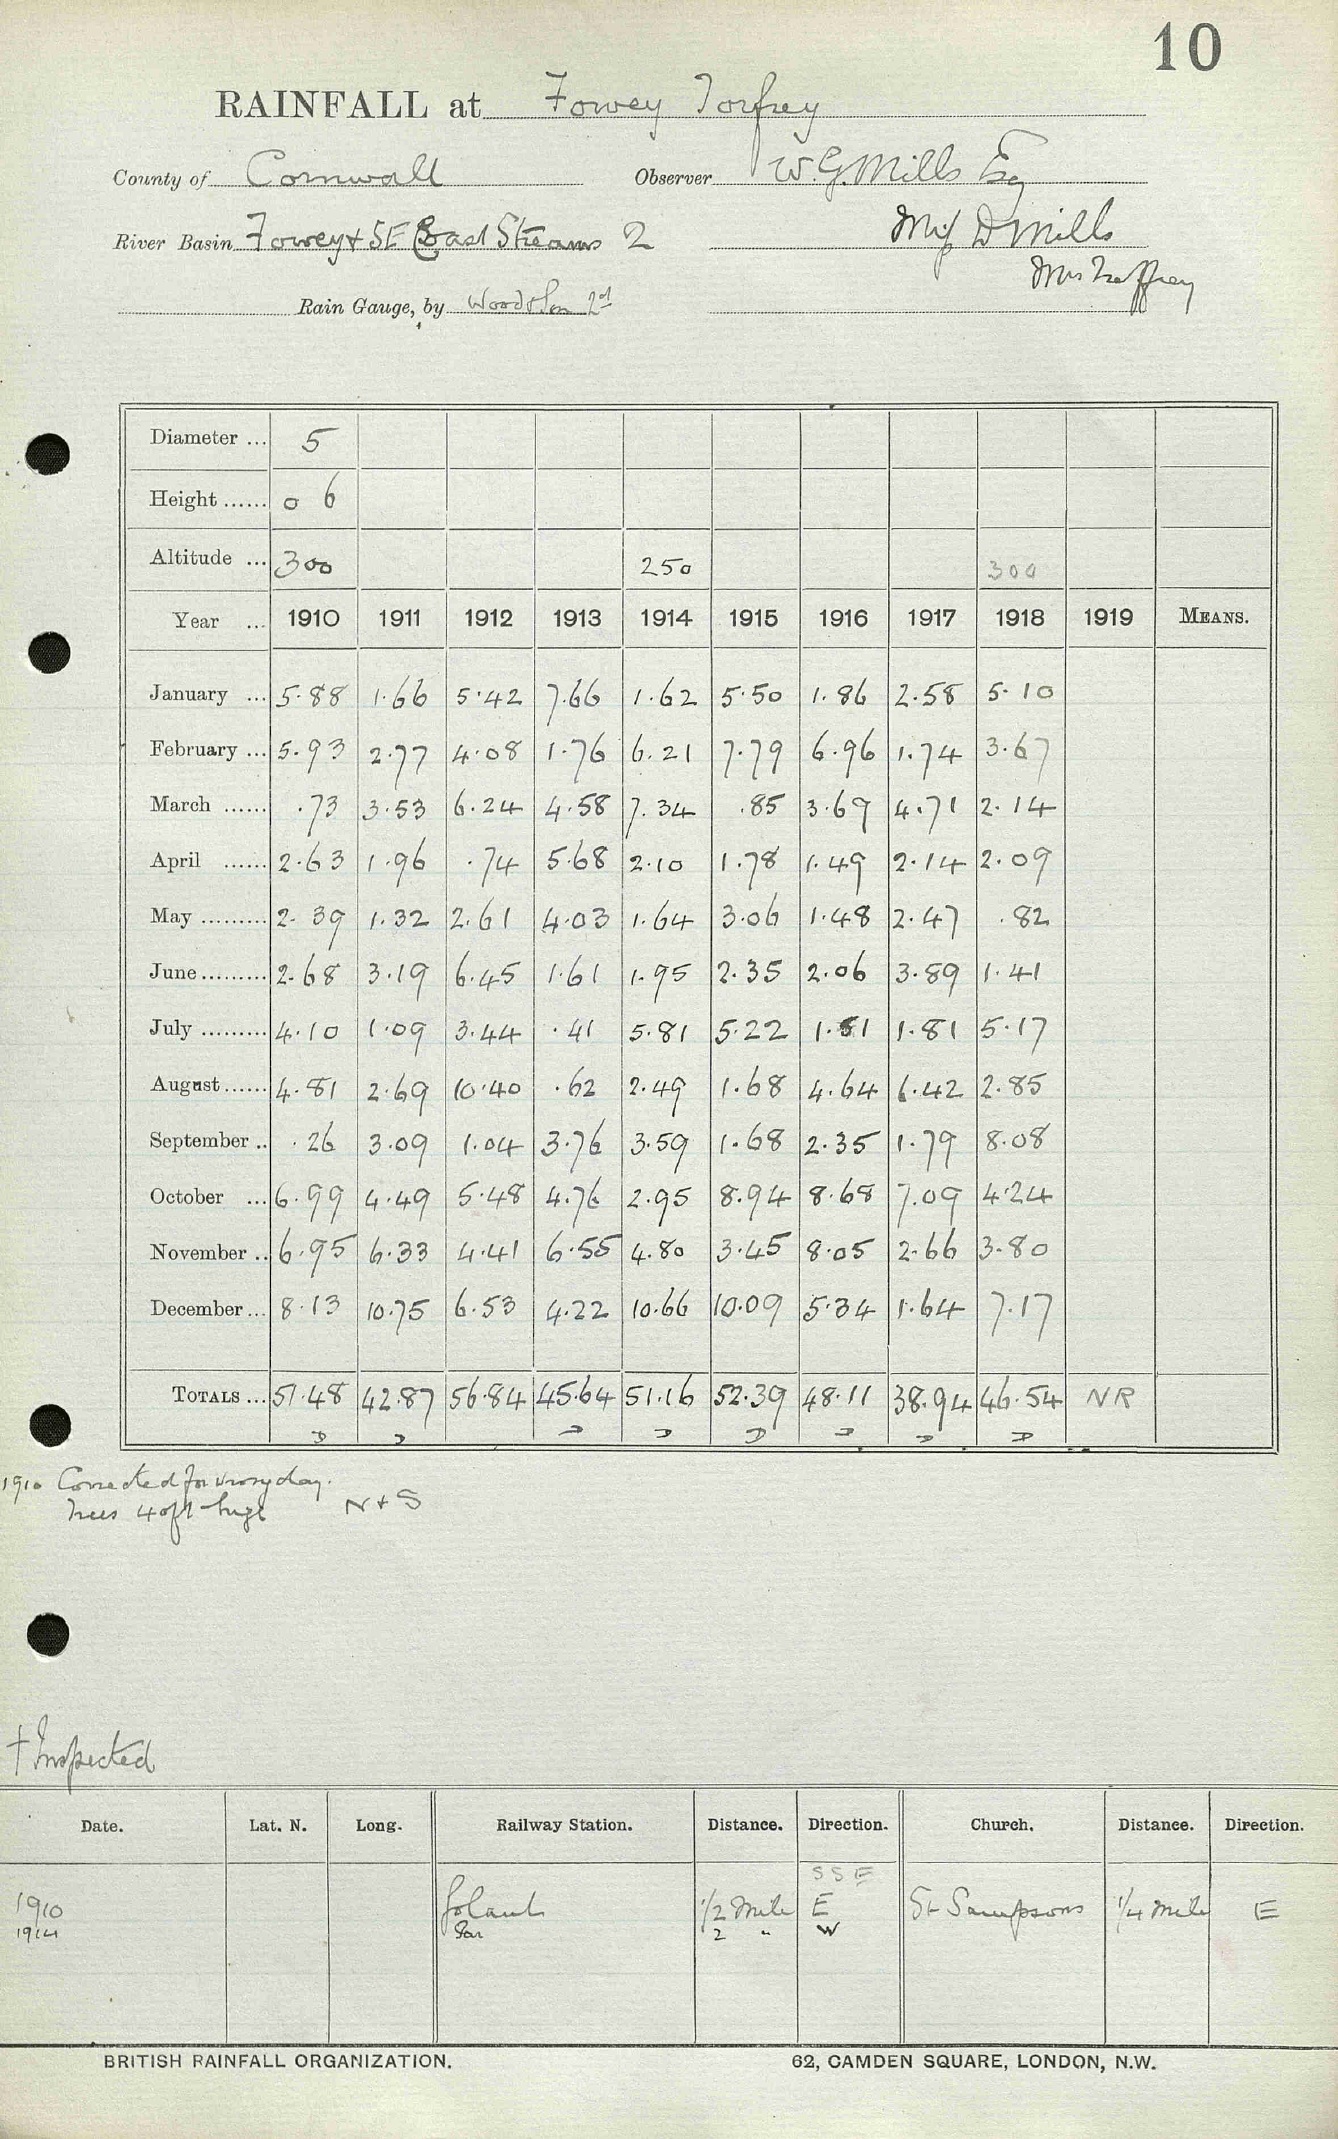 10
RAINFALL at Fowey Torfrey
County of Cornwall Observer W. G. Mills Esq
River Basin Fowey & SE Coast Streams 2 Miss D Mills
Mrs Treffrey
Rain Gauge, by Wood & Son 2nd
Diameter ... 5
Height ...... 0 6
Altitude ... 300 250 300
Year ... 1910 1911 1912 1913 1914 1915 1916 1917 1918 1919 MEANS.
January ... 5.88 1.66 5.42 7.66 1.62 5.50 1.86 2.58 5.10
February ... 5.93 2.77 4.08 1.76 6.21 7.79 6.96 1.74 3.67
March ...... .73 3.53 6.24 4.58 7.34 .85 3.69 4.71 2.14
April ...... 2.63 1.96 .74 5.68 2.10 1.78 1.49 2.14 2.09
May ......... 2.39 1.32 2.61 4.03 1.64 3.06 1.48 2.47 .82
June ......... 2.68 3.19 6.45 1.61 1.95 2.35 2.06 3.89 1.41
July ......... 4.10 1.09 3.44 .41 5.81 5.22 1.51 1.81 5.17
August ...... 4.81 2.69 10.40 .62 2.49 1.68 4.64 6.42 2.85
September .. .26 3.09 1.04 3.76 3.59 1.68 2.35 1.79 8.08
October ... 6.99 4.49 5.48 4.76 2.95 8.94 8.68 7.09 4.24
November .. 6.95 6.33 4.41 6.55 4.80 3.45 8.05 2.66 3.80
December ... 8.13 10.75 6.53 4.22 10.66 10.09 5.34 1.64 7.17
TOTALS ... 51.48 42.87 56.84 45.64 51.16 52.39 48.11 38.94 46.54 NR
D D D D D D D D
1910 Corrected for wrong day.
Trees 40ft high N + S
† Inspected
Date. Lat. N. Long. Railway Station. Distance. Direction. Church. Distance. Direction.
SSE
1910 Golant 1/2 Mile E St Sampsons 1/4 Mile E
1914 Par 2 " W
BRITISH RAINFALL ORGANIZATION. 62, CAMDEN SQUARE, LONDON, N.W.